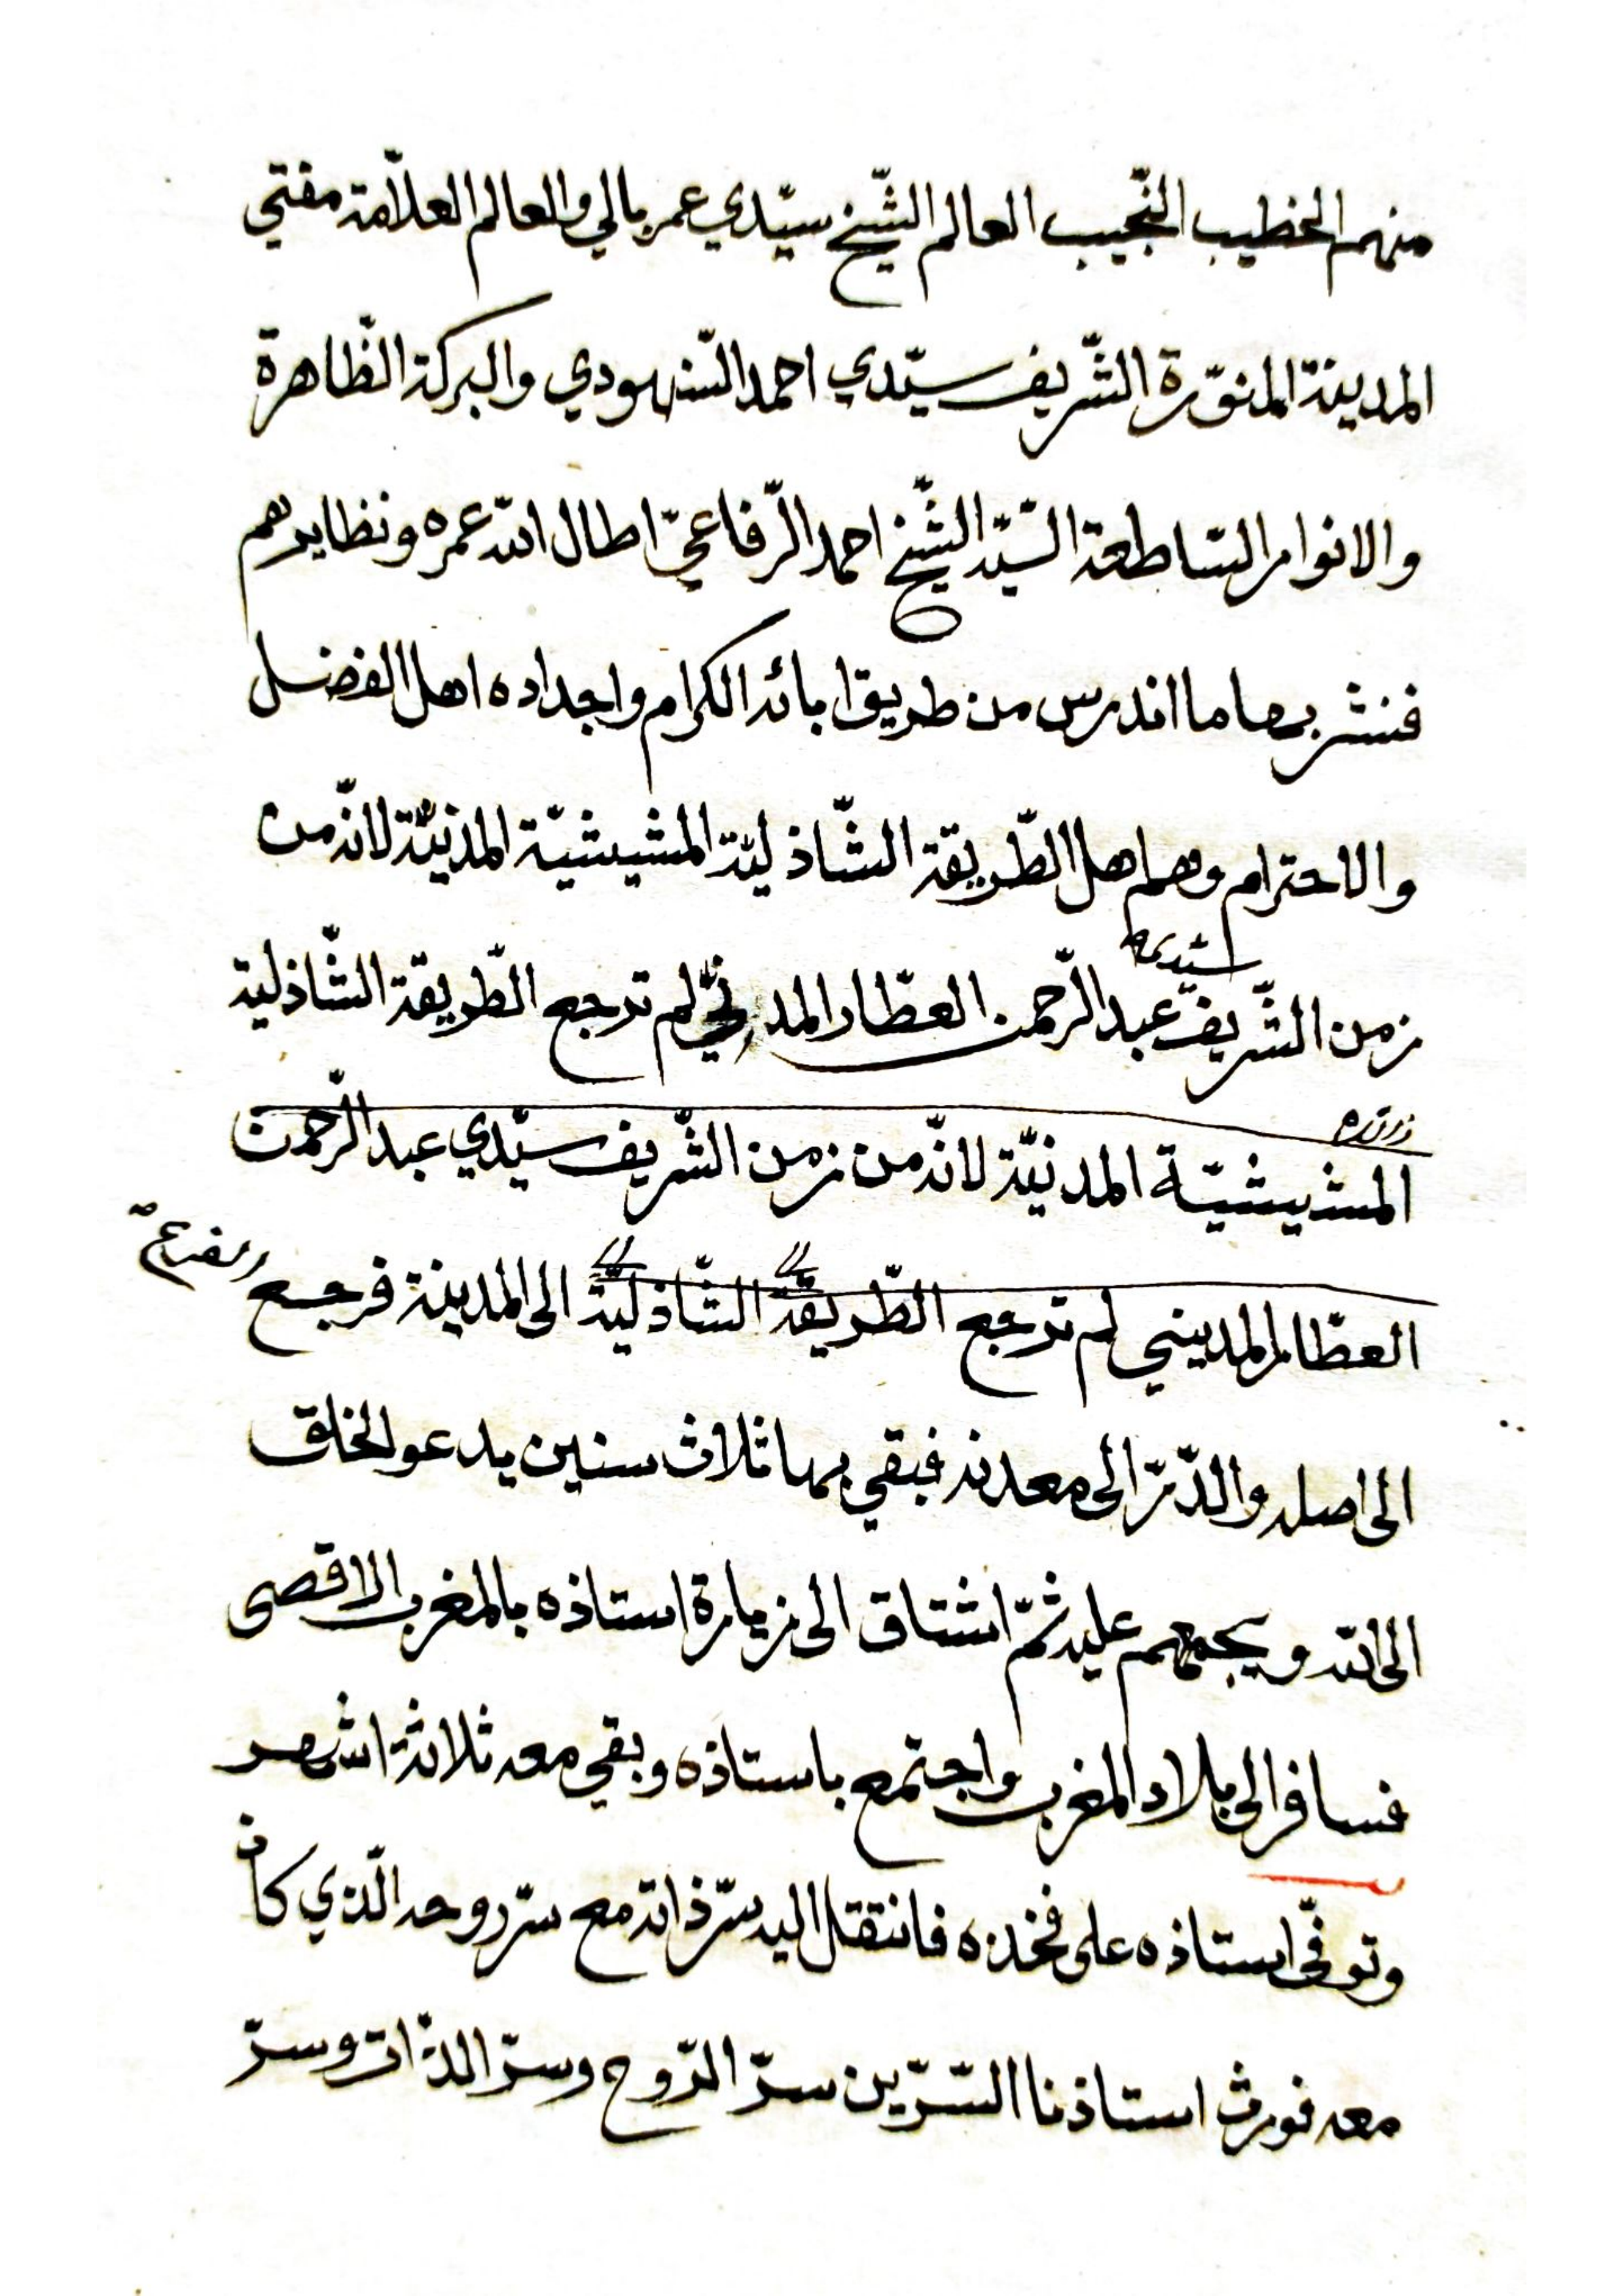 منهم الخطيب النّجيب العالم الشّيخ سيّدي عمر بالي والعالم العلّامة مفتي
المدينة المنوّرة الشّريف سيّدي احمد السّنهودي والبركة الظّاهرة
والانوار السّاطعة السّيّد الشّيخ احمد الرّفاعيّ اطال الله عمره ونظايرهم
فنشر بها ما اندرس من طريق ابائه الكرام واجداده اهل الفضل
والاحترام وهم اهل الطّريقة الشّاذليّة المشيشيّة المدنيّة لانّه من
سيّدي
زمن الشّريف عبد الرّحمن العطّار المدنيّ لم ترجع الطّريقة الشّاذلية
المشيشيّة المدنيّة لانّه من زمن الشّريف سيّدي عبد الرّحمن
العطّار المديني لم ترجع الطّريقة الشّاذليّة الى المدينة فرجع
الى اصله والدّرّ الى معدنه فبقي بها ثلاث سنين يدعو الخلق
الى الله ويجمعهم عليه ثمّ اشتاق الى زيارة استاذه بالمغرب الاقصى
فسافر الى بلاد المغرب واجتمع باستاذه وبقي معه ثلاثة اشهر
وتوفّى استاذه على فخذه فانتقل اليه سرّ ذاته مع سرّ روحه الّذي كان
معه فورث استاذنا السّرّين سرّ الرّوح وسرّ الذّات وسرّ